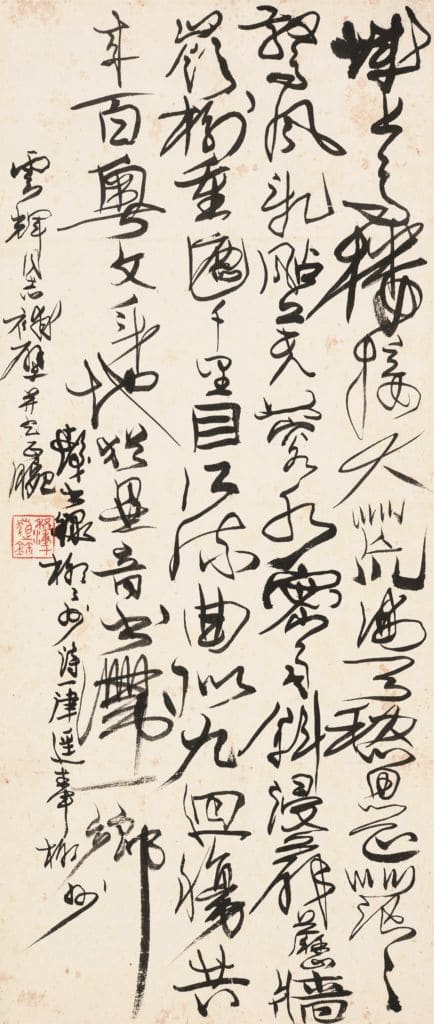 城上高樓接大荒海天愁思正茫〻
驚風亂颭芙蓉水密雨斜浸薜荔牆
嶺樹重遮千里目江流曲似九迴腸共
來百粵文身地猶是音書滯一鄉
錄柳〻州詩一律遥奉柳州
雲輝同志補壁并書